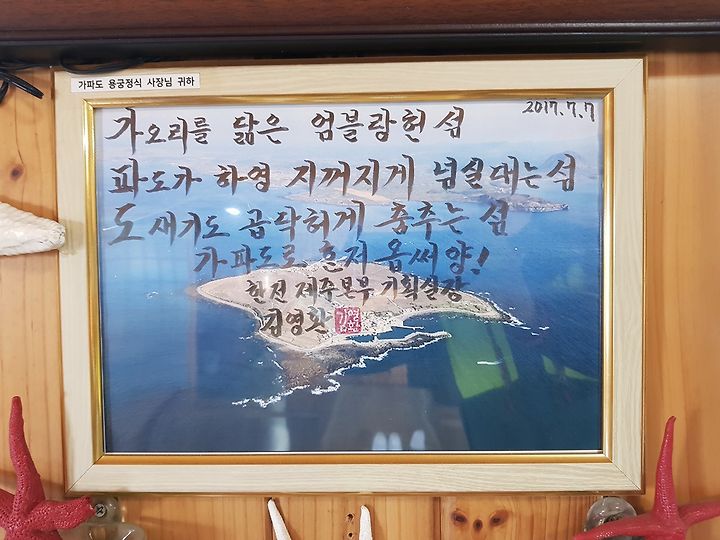 가파도 용궁정식 사장님 귀하
2017.7.7
가오리를 닮은 엄블랑헌 섬
파도가 하영 지꺼지게 넘실대는 섬
도새기도 곱닥허게 춤추는 섬
가파도로 혼저 옵써양!
한전 제주본부 기획실장
김영환